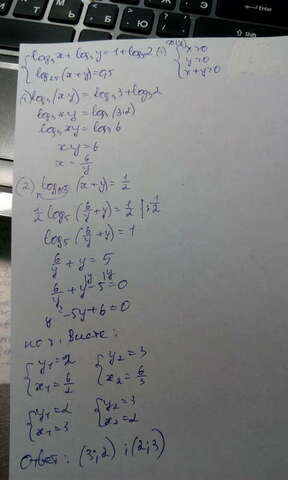 {log₃x + log₃y = 1 + log₃2 (1) {x>0
{log₂₅(x+y) = 0,5 y>0
x+y>0
(1) log₃(x·y) = log₃3 + log₃2
log₃xy = log₃(3·2)
log₃xy = log₃6
xy = 6
x = 6/y
(2) log₂₅(x+y) = 1/2
1/2 log₅(6/y + y) = 1/2 | : 1/2
log₅(6/y + y) = 1
6/y + y = 5
6/y + y - 5 = 0
y² - 5y + 6 = 0
по т. Виета:
{y₁ = 2 {y₂ = 3
{x₁ = 6/2 {x₂ = 6/3
{y₁ = 2 {y₂ = 3
{x₁ = 3 {x₂ = 2
Ответ: (3;2) ; (2;3)